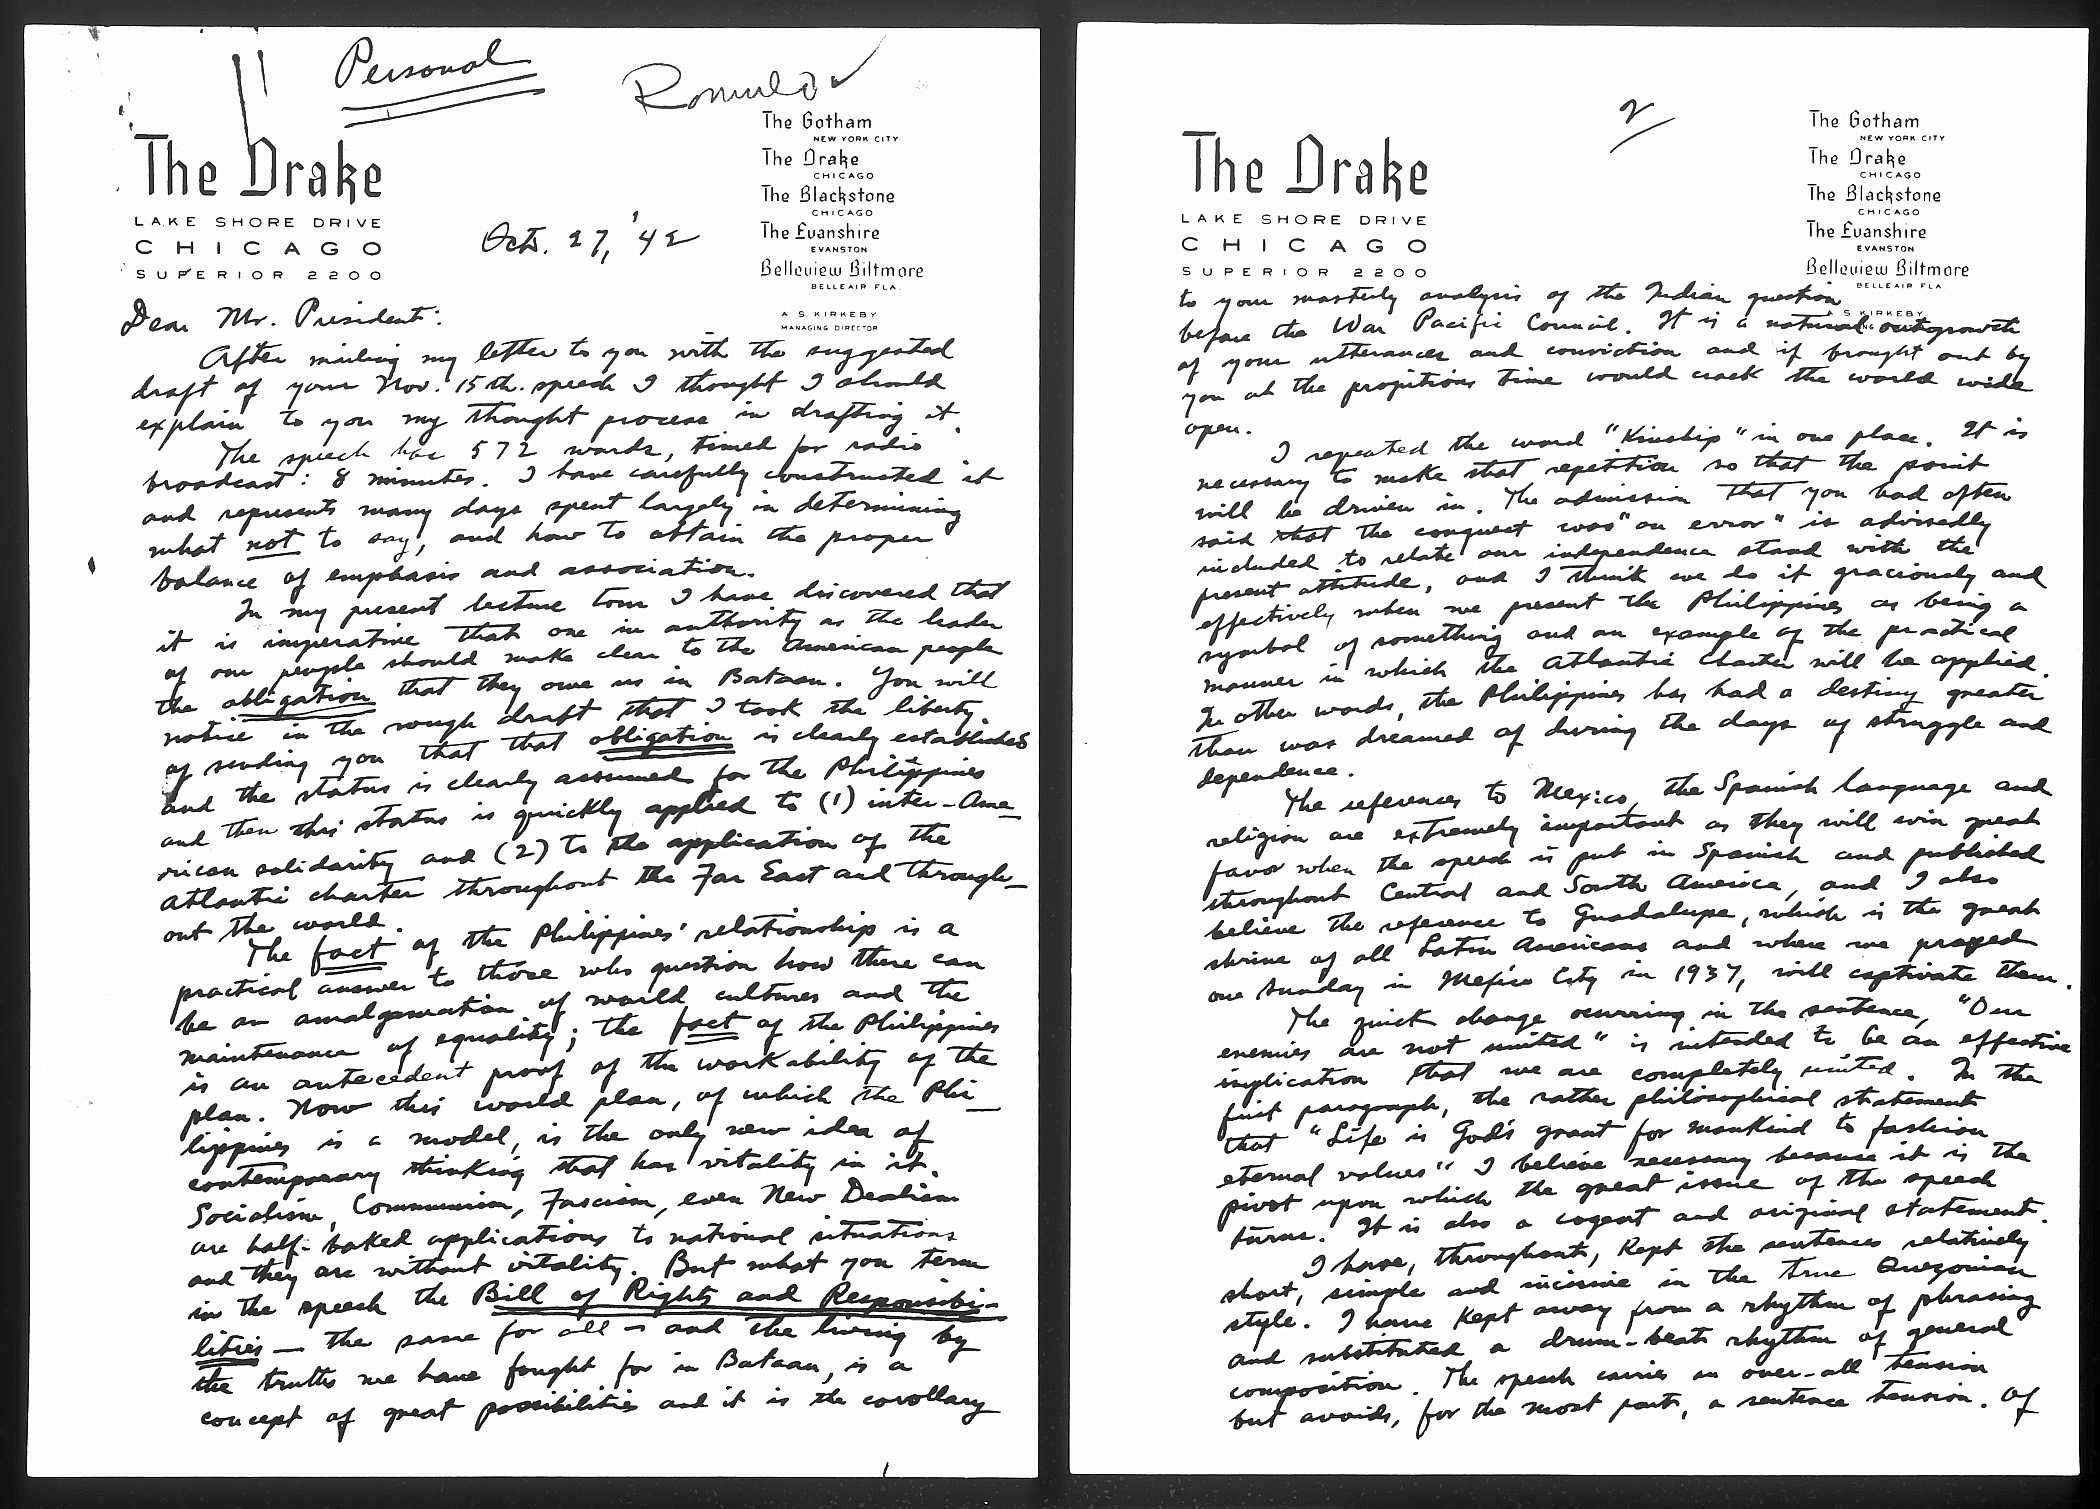 Personal
Romulo
The Drake
LAKE SHORE DRIVE
CHICAGO
SUPERIOR 2200
The Gotham
NEW YORK CITY
The Drake
CHICAGO
The Blackstone
CHICAGO
The Evanshire
EVANSTON
Belleview Biltmore
BELLEAIR FLA.
A S KIRKEBY
MANAGING DIRECTOR
Oct. 27, '42
Dear Mr. President:
After mailing my letter to you with the suggested
draft of your Nov. 15th. speech I thought I should
explain to you my thought process in drafting it.
The speech has 572 words, timed for radio
broadcast: 8 minutes. I have carefully constructed it
and represents many days spent largely in determining
what not to say, and how to obtain the proper
balance of emphasis and association.
In my present lecture tour I have discovered that
it is imperative that one in authority as the leader
of our people should make clear to the American people
the obligation that they owe us in Bataan. You will
notice in the rough draft that I took the liberty
of sending you that that obligation is clearly established
and the status is clearly assumed for the Philippines
and then this status is quickly applied to (1) inter-Ame-
rican solidarity and (2) to the application of the
Atlantic charter throughout the Far East and through-
out the world.
The fact of the Philippines' relationship is a
practical answer to those who question how there can
be an amalgamation of world cultures and the
maintenance of equality; the fact of the Philippines
is an antecedent proof of the workability of the
plan. Now this world plan, of which the Phi-
lippines is a model, is the only new idea of
contemporary thinking that has vitality in it.
Socialism, Communism, Fascism, even New Dealism
are half-baked applications to national situations
and they are without vitality. But what you term
in the speech the Bill of Rights and Responsibi-
lities — the same for all — and the living by
the truths we have fought for in Bataan, is a
concept of great possibilities and it is the corollary
2
The Drake
LAKE SHORE DRIVE
CHICAGO
SUPERIOR 2200
The Gotham
NEW YORK CITY
The Drake
CHICAGO
The Blackstone
CHICAGO
The Evanshire
EVANSTON
Belleview Biltmore
BELLEAIR FLA
A S KIRKEBY
to your masterly analysis of the Indian question
before the War Pacific Council. It is a natural outgrowth
of your utterances and conviction and if brought out by
you at the propitious time would crack the world wide
open.
I repeated the word "Kinship" in one place. It is
necessary to make that repetition so that the point
will be driven in. The admission that you had often
said that the conquest was "an error" is advisedly
included to relate our independence stand with the
present attitude, and I think we do it graciously and
effectively when we present the Philippines as being a
symbol of something and an example of the practical
manner in which the Atlantic Charter will be applied.
In other words, the Philippines has had a destiny greater
than was dreamed of during the days of struggle and
dependence.
The references to Mexico, the Spanish language and
religion are extremely important as they will win great
favor when the speech is put in Spanish and published
throughout Central and South America, and I also
believe the reference to Guadalupe, which is the great
shrine of all Latin Americans and where we prayed
one Sunday in Mejico City in 1937, will captivate them.
The quick change ocurring in the sentence, "Our
enemies are not united" is intended to be an effective
implication that we are completely united. In the
first paragraph, the rather philosophical statement
that "Life is God's grant for mankind to fashion
eternal values" I believe necessary because it is the
pivot upon which the great issue of the speech
turns. It is also a cogent and original statement.
I have, throughout, kept the sentences relatively
short, simple and incisive in the true Quezonian
style. I have kept away from a rhythm of phrasing
and substituted a drum-beat rhythm of general
composition. The speech carries an over-all tension
but avoids, for the most part, a sentence tension. Of